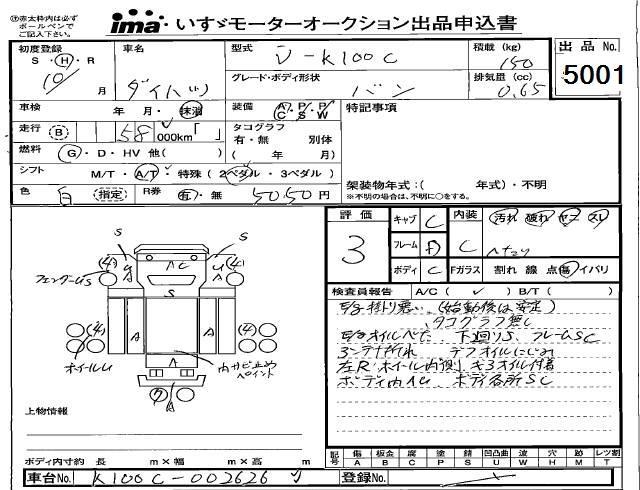 ㊟赤太枠内は必ず
ボールペンで
ご記入下さい。
ima・いすゞモーターオークション出品申込書
初度登録
S・H・R
10 月
車名
ダイハツ
型式
V-K100C
積載(kg)
150
グレード・ボディ形状
バン
排気量(cc)
0.65
出品No.
5001
車検
年 月・抹消
装備 A/C・P/S・P/W
特記事項
走行 B 58 000km「 」
タコグラフ
有・無 別体
( 年 月)
燃料 G・D・HV 他( )
シフト M/T・A/T・特殊(2ペダル・3ペダル)
色 白 (指定) R券 有・無 5050円
架装物年式:( 年式)・不明
※不明の場合は、不明に○をする。
評価
3
キャブ C
フレーム D
ボディ C
内装 C
汚れ 破れ ヤニ スレ
Fガラス 割れ 線 点傷 イバリ
検査員報告 A/C( ✓ ) B/T( )
E/g掛り悪い (始動後は安定)
タコグラフ無し
E/gオイルべた 下廻りS、フレームSC
デフオイルにじみ
左R ホイール内側 ギヤオイル付着
ボディ内AU ボディ各所SC
S S
(4) (4)
U A C U
フェンダーUS
S
(4) (4)
A A A
ホイールU
A
内サビ止めペイント
A
上物情報
ボディ内寸約 長 m×幅 m×高 m
記号 傷 A 板金 B 腐 C 塗 P 錆 S 凹凸曲 U 波 W 穴 H 跡 M レツ割 T
車台No. K100C-002626
登録No.